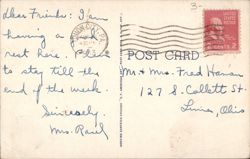 Dear Friends: I am
having a good
rest here. Plan
to stay till the
end of the week.
Sincerely
Mrs. Raul
POST CARD
Mr & Mrs. Fred Hanan
127 S. Collett St.
Lima, Ohio
3-
2